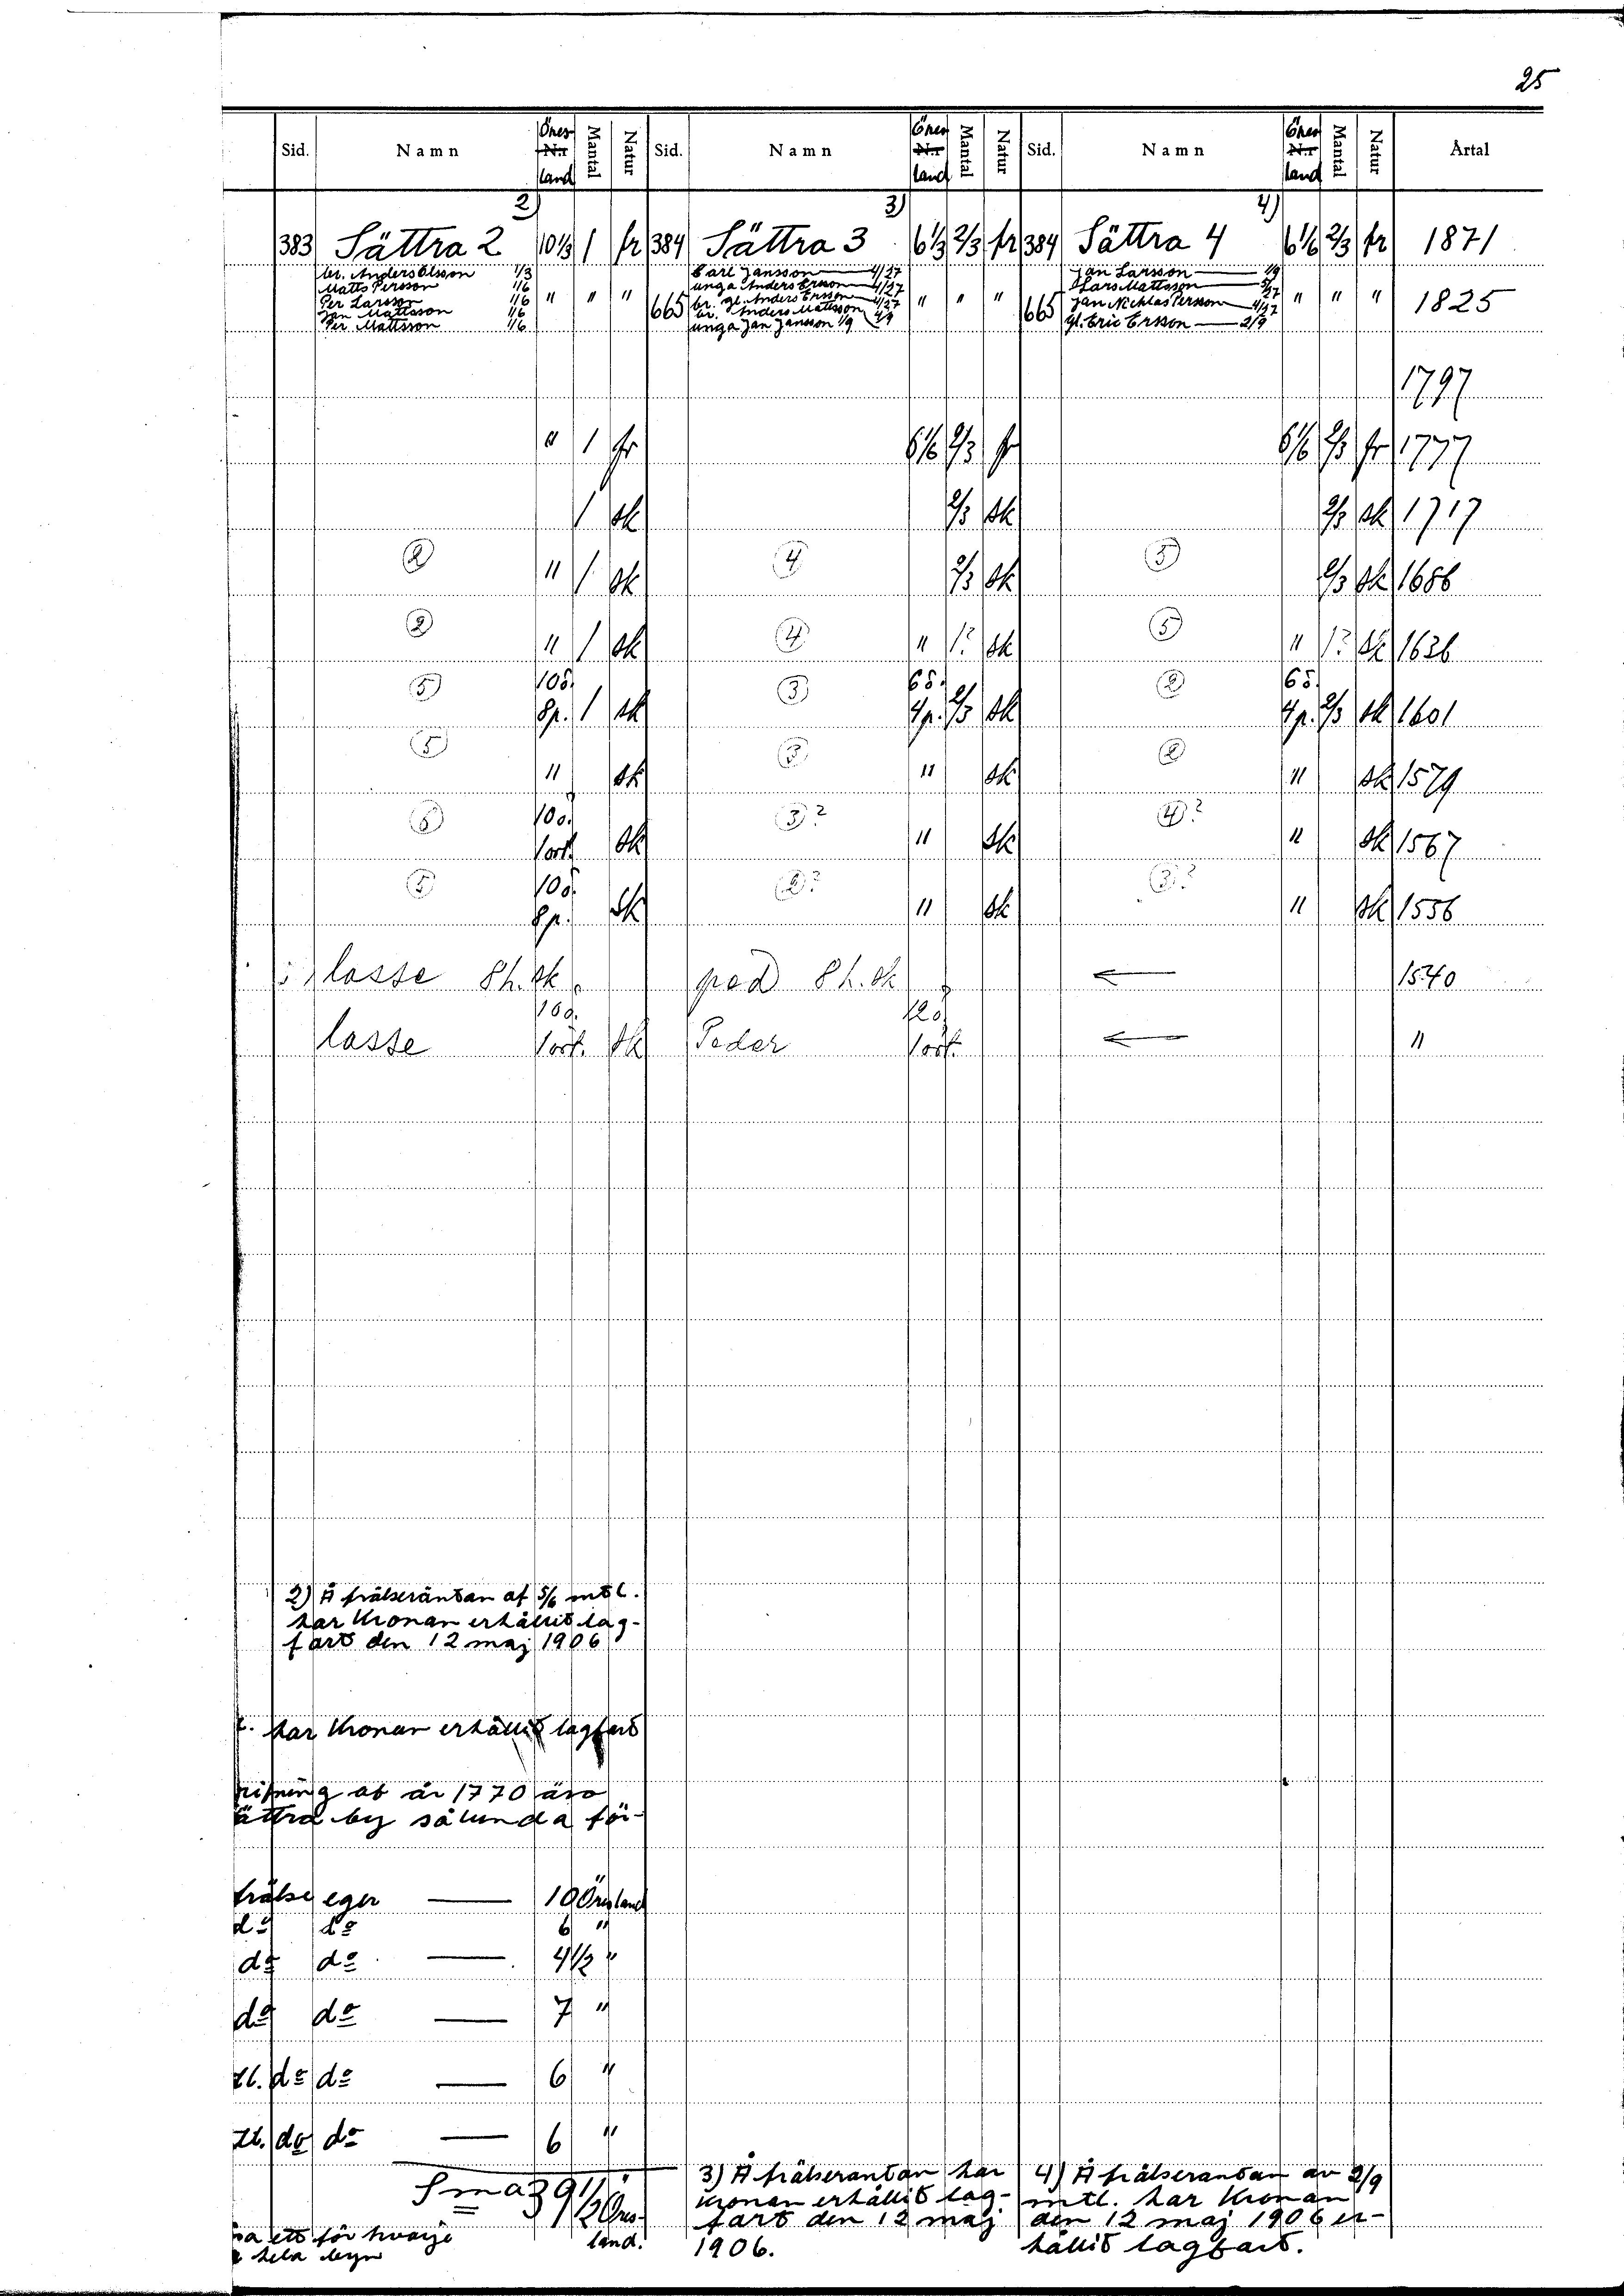 25
Sid. Namn Öres Nr land Mantal Natur Sid. Namn Öres Nr land Mantal Natur Sid. Namn Öres Nr land Mantal Natur Årtal
2) 3) 4)
383 Sättra 2 10 1/3 1 fr 384 Sättra 3 6 1/3 2/3 fr 384 Sättra 4 6 1/6 2/3 fr 1871
br. Anders Olsson 1/3 Carl Jansson 4/27 Jan Larsson 1/9
Matts Persson 1/6 unga Anders Ersson 4/27 Lars Mattsson 5/27
Per Larsson 1/6 " " " 665 br. gl. Anders Ersson 4/27 " " " 665 Jan Nichlas Persson 4/27 " " " 1825
Jan Mattsson 1/6 br. Anders Mattsson 4/9 gl. Eric Ersson 2/9
Per Mattsson 1/6 unga Jan Jansson 1/9
1797
" 1 fr 6 1/6 2/3 fr 6 1/6 2/3 fr 1777
1 sk 2/3 sk 2/3 sk 1717
2 " 1 sk 4 2/3 sk 5 2/3 sk 1686
2 " 1 sk 4 " 1? sk 5 " 1? sk 1626
5 10ö. 8p. 1 sk 3 6ö. 4p. 2/3 sk 2 6ö. 4p. 2/3 sk 1601
5 " sk 3 " sk 2 " sk 1579
5 10ö. 1ört. sk 3? " sk 4? " sk 1567
5 10ö. 8p. sk 2? " sk 3? " sk 1556
lasse 8h. sk ped 8h. sk ← 1540
lasse 10ö. 1ört. sk Peder 12ö. 1ört. ← "
2) Å frälseräntan af 5/6 mtl.
har Kronan erhållit lag-
fart den 12 maj 1906
har Kronan erhållit lagfart
rifning af år 1770 äro
ättra by sålunda för-
frälse eger — 10 Öresland
do do 6 "
do do — 4 1/2 "
do do — 7 "
do do — 6 "
do do — 6 "
Sma 39 1/2 Öres-
land.
a ett för hvarje
hela byn
3) Å frälseräntan har
Kronan erhållit lag-
fart den 12 maj
1906.
4) Å frälseräntan av 2/9
mtl. har Kronan
den 12 maj 1906 er-
hållit lagfart.